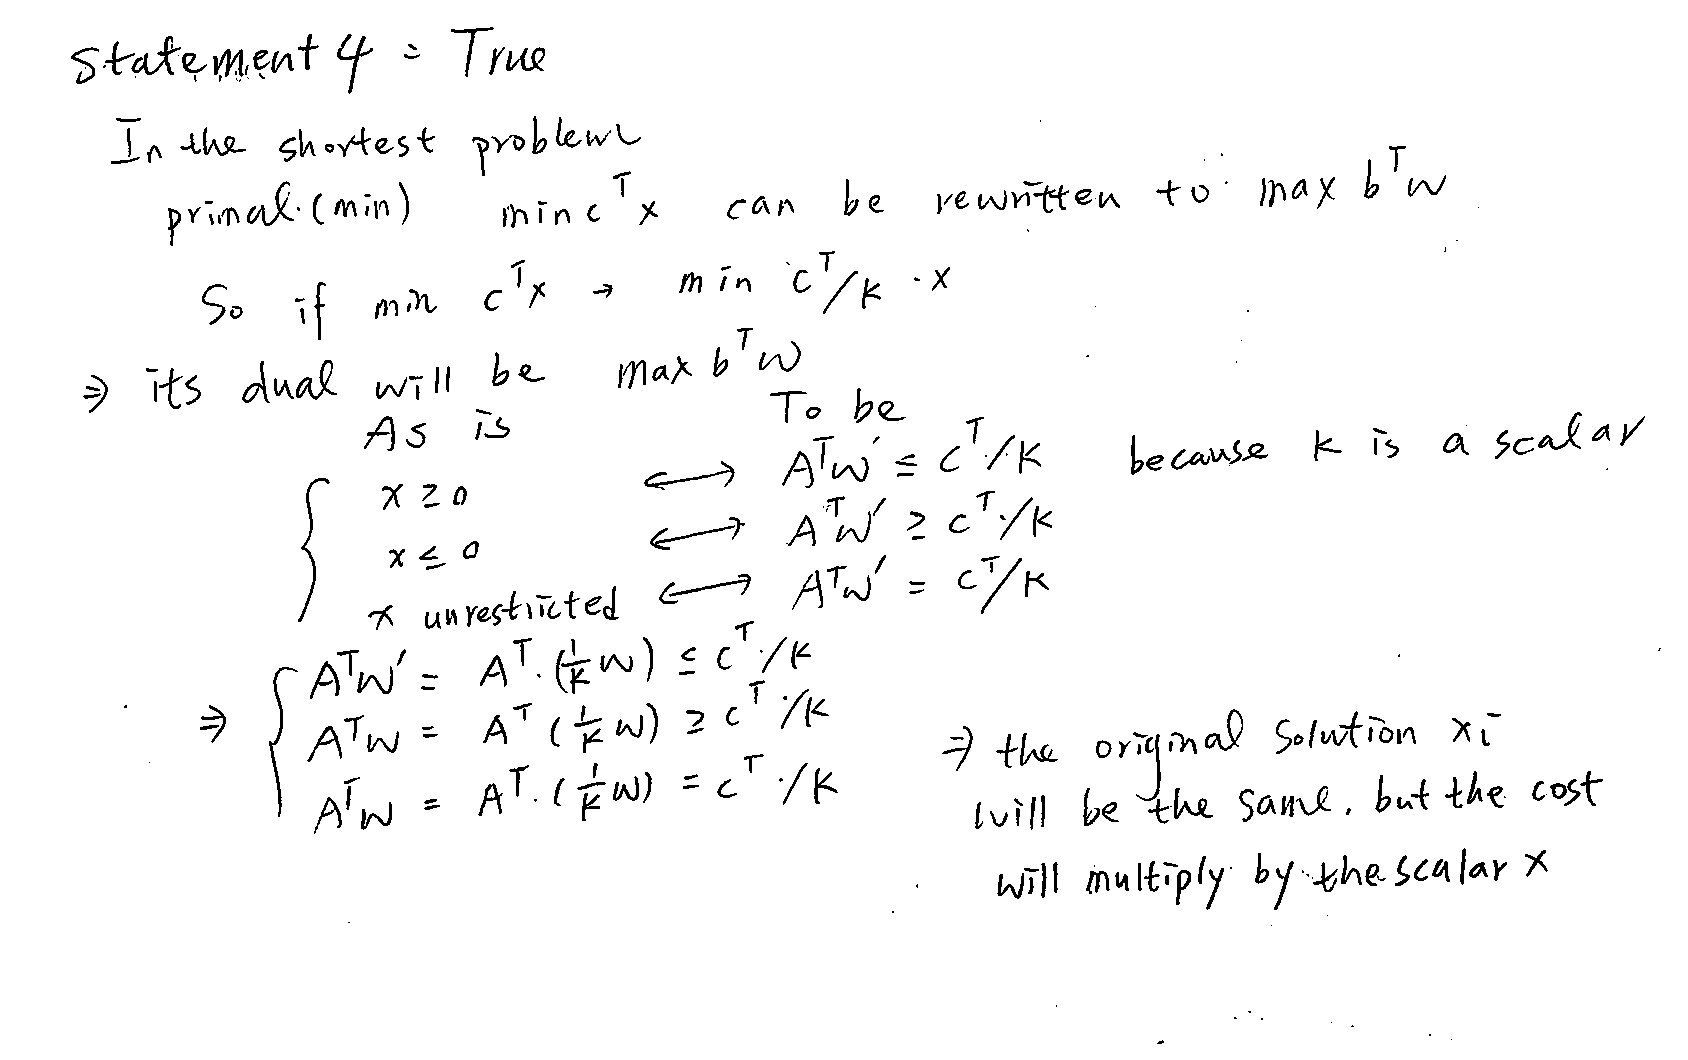 Statement 4 : True
In the shortest problem
primal (min) min cᵀx can be rewritten to max bᵀw
So if min cᵀx → min cᵀ/k · x
⇒ its dual will be max bᵀw
As is To be
x ≥ 0 ⟷ Aᵀw' ≤ cᵀ/k because k is a scalar
x ≤ 0 ⟷ Aᵀw' ≥ cᵀ/k
x unrestricted ⟷ Aᵀw' = cᵀ/k
⇒ { Aᵀw' = Aᵀ·(1/k w) ≤ cᵀ/k
Aᵀw = Aᵀ (1/k w) ≥ cᵀ/k
Aᵀw = Aᵀ·(1/k w) = cᵀ/k
⇒ the original solution xi
will be the same, but the cost
will multiply by the scalar x